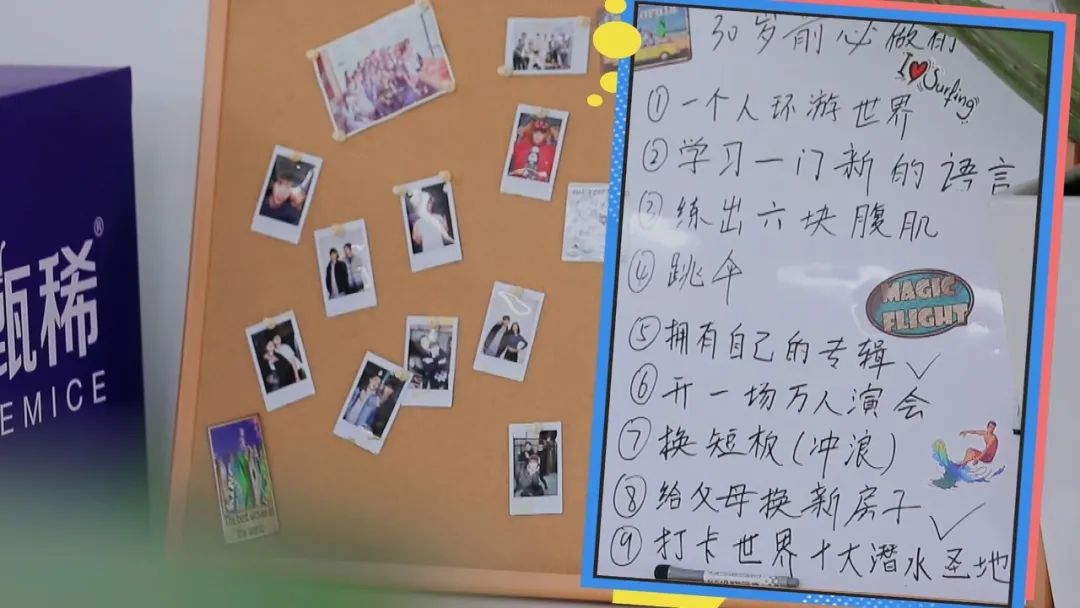 甄稀®
EMICE
The best wishes in
the world
30岁前必做的
I ❤ Surfing
① 一个人环游世界
② 学习一门新的语言
③ 练出六块腹肌
④ 跳伞
MAGIC
FLIGHT
⑤ 拥有自己的专辑 ✓
⑥ 开一场万人演会
⑦ 换短板(冲浪)
⑧ 给父母换新房子 ✓
⑨ 打卡世界十大潜水圣地